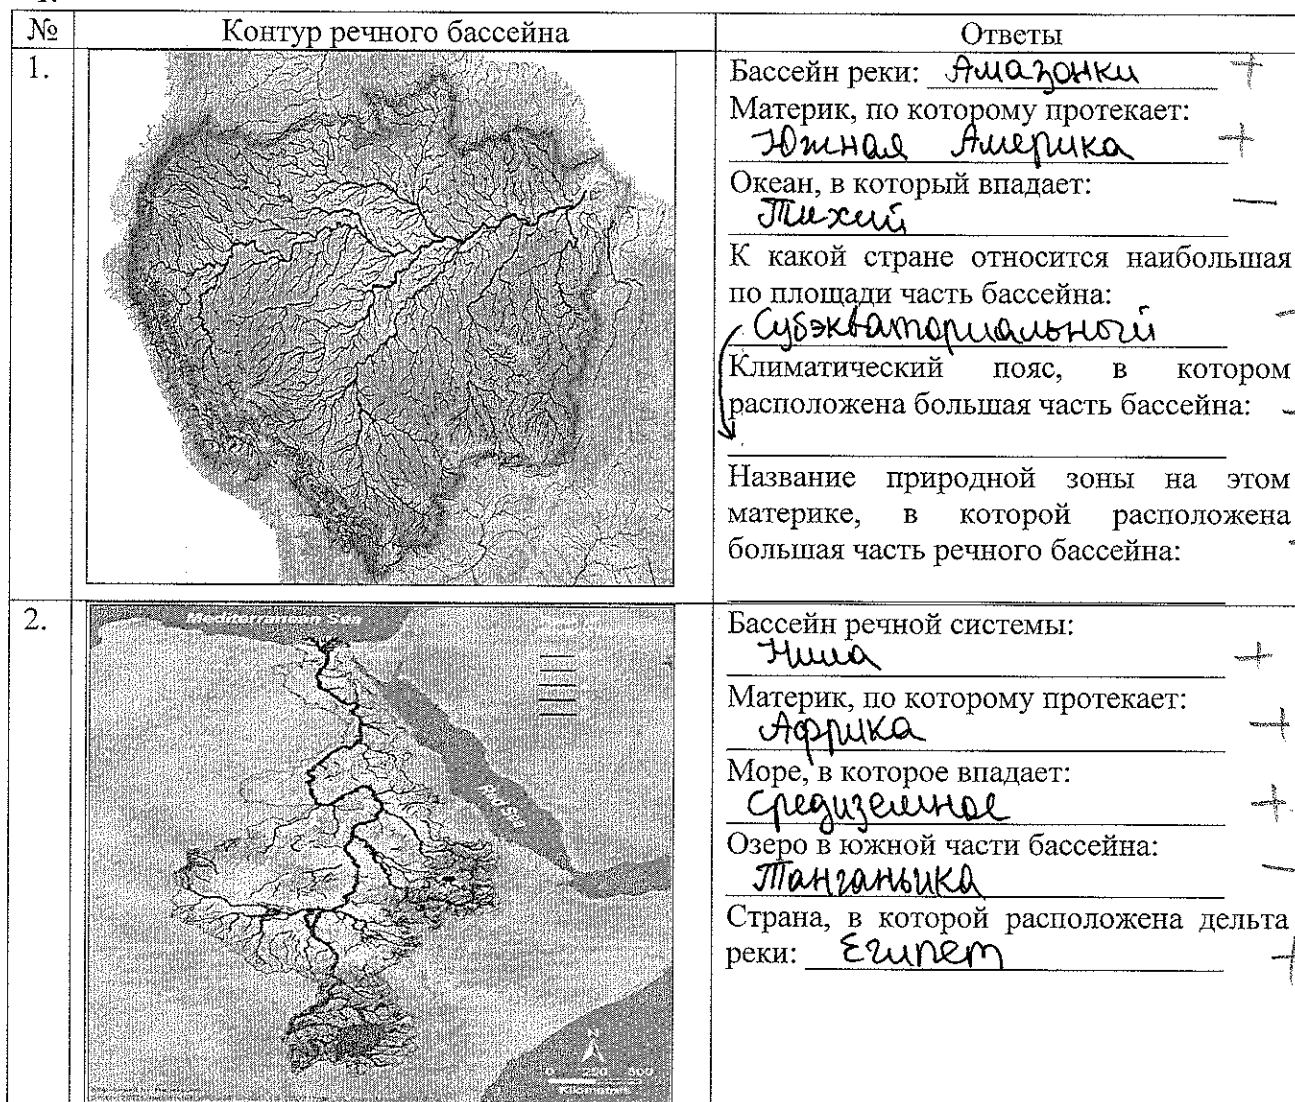 № Контур речного бассейна Ответы
1.
Бассейн реки: Амазонки +
Материк, по которому протекает:
Южная Америка +
Океан, в который впадает:
Тихий —
К какой стране относится наибольшая
по площади часть бассейна:
Субэкваториальный -
Климатический пояс, в котором
расположена большая часть бассейна: -
Название природной зоны на этом
материке, в которой расположена
большая часть речного бассейна: -
2.
Mediterranean Sea
Red Sea
N
0 250 500
Kilometers
Бассейн речной системы:
Нила +
Материк, по которому протекает:
Африка +
Море, в которое впадает:
Средиземное +
Озеро в южной части бассейна:
Танганьика —
Страна, в которой расположена дельта
реки: Египет +